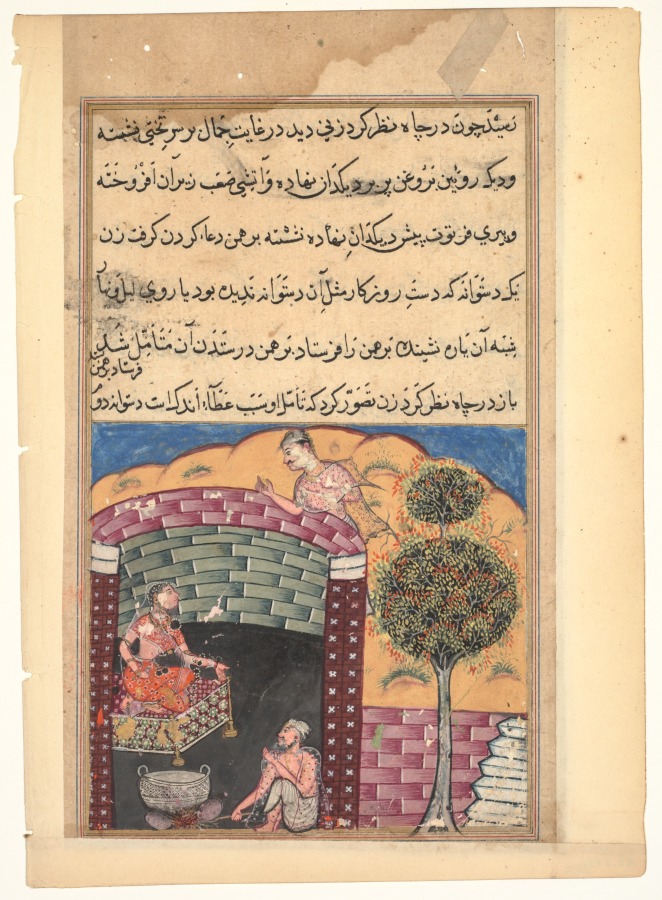 رسید چون در چاه نظر کرد زنی دید در غایت جمال بر سر تختی نشسته
و دیک رویین بروغن پر بر دیکدان نهاده و آتشی صعب زیر آن افروخته
و پیری فرتوت پیش دیکدان نهاده نشسته برهمن دعا کردن کرفت زن
یک دستوانه که دست روزکار مثل آن دستوانه ندیده بود یا روی
شبه آن یاره نشینده برهمن را فرستاد برهمن در ستدن آن متأمل شد
فرستاد برهمن
باز در چاه نظر کرد زن تصور کرد که تأمل او سبب عطاء اندک است دستوانه دوم